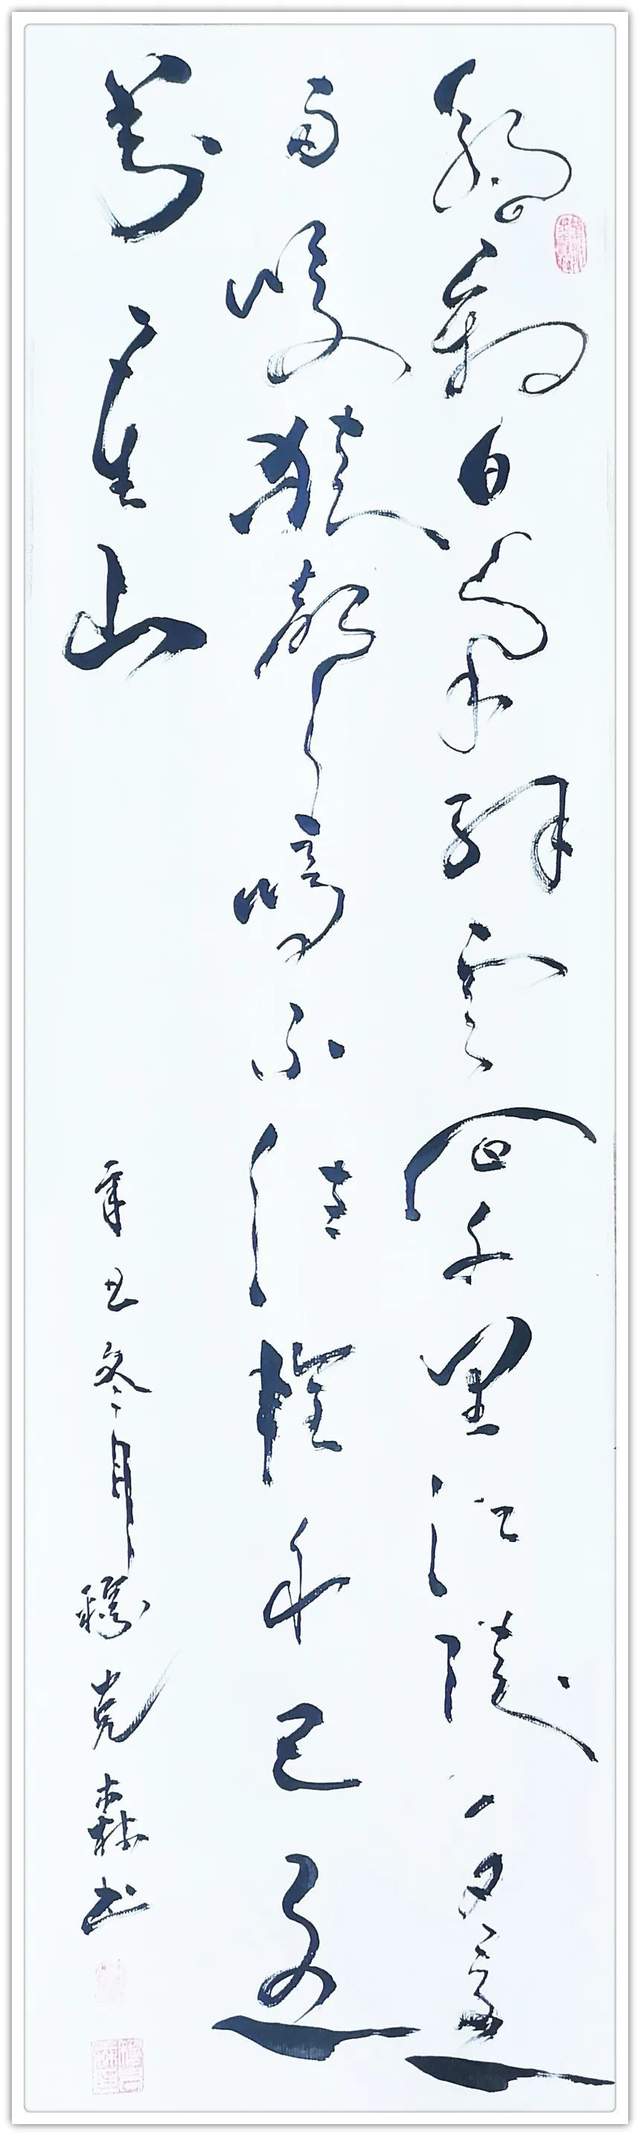 朝辞白帝彩云间千里江陵一日还
两岸猿声啼不住轻舟已过
万重山
辛丑冬月穆克森书